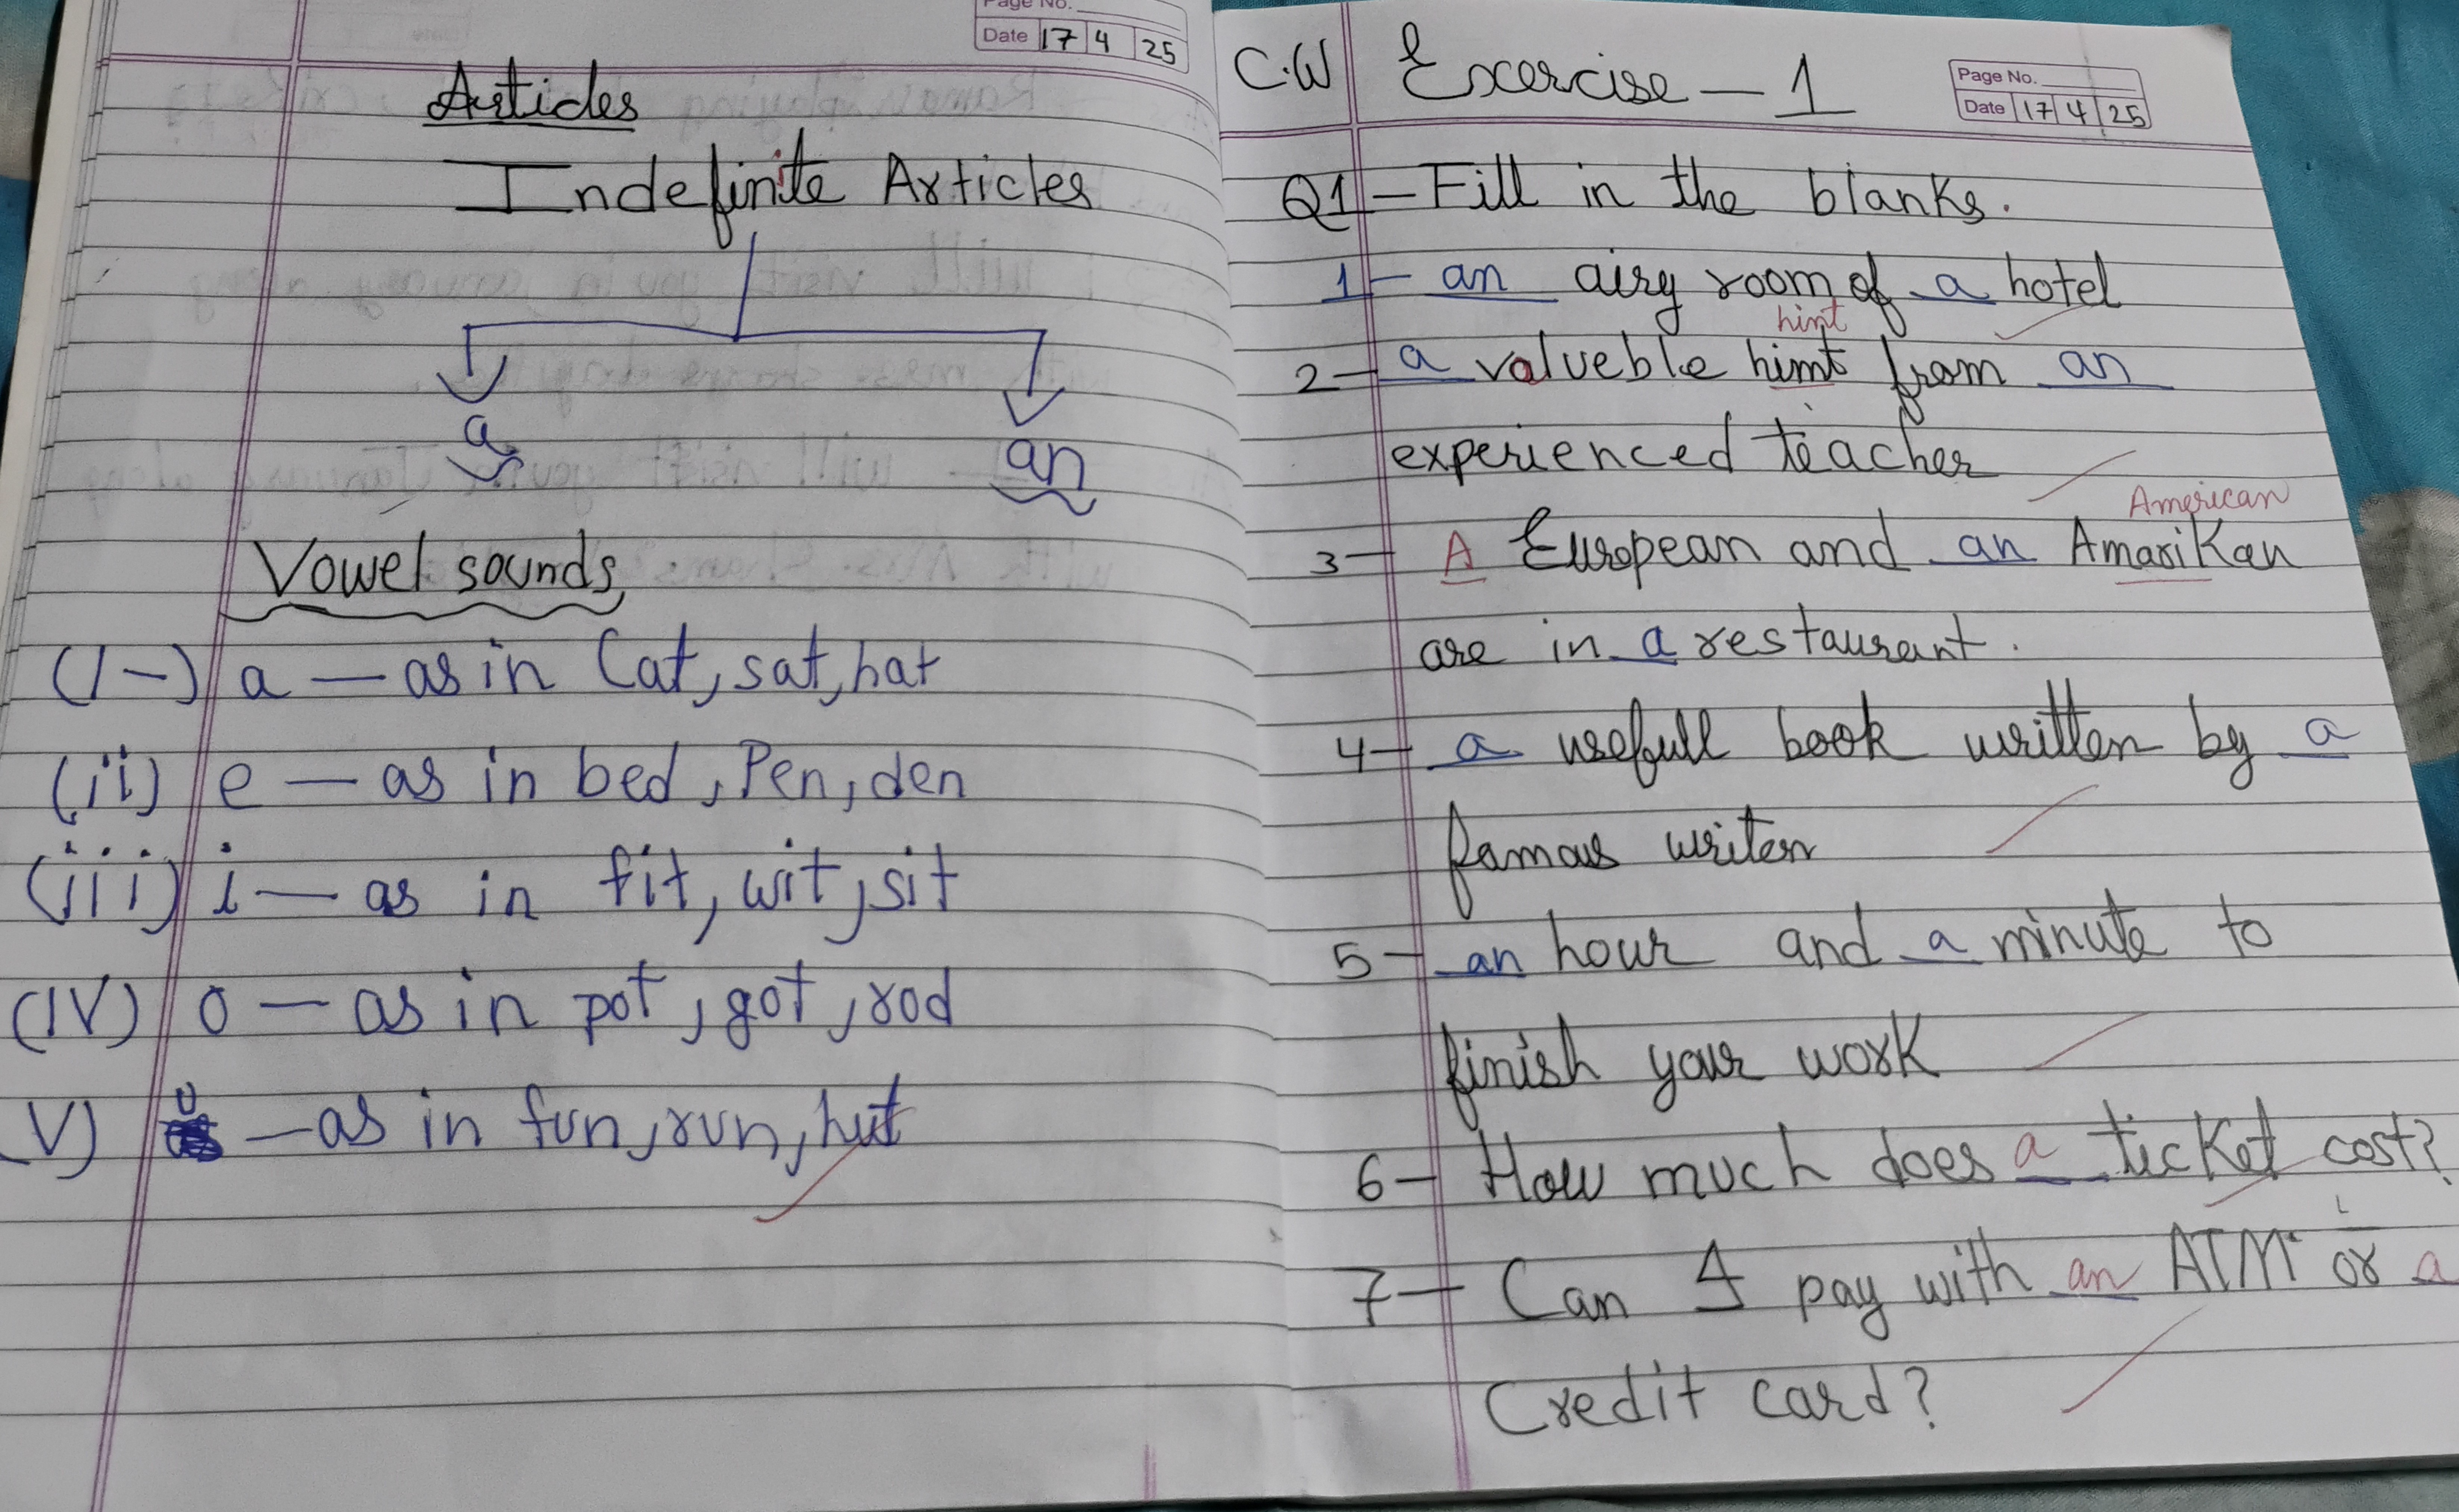 Page No.
Date 17 4 25
Articles
Indefinite Articles
a an
Vowel sounds
(I-) a — as in Cat, sat, hat
(ii) e — as in bed, Pen, den
(iii) i — as in fit, wit, sit
(IV) o — as in pot, got, rod
V) u — as in fun, run, hut
C.W Exercise - 1
Page No.
Date 17 4 25
Q1 - Fill in the blanks.
1 - an airy room of a hotel
hint
2 - a valueble himt from an
experienced teacher
American
3 - A European and an Amarikan
are in a restaurant.
4 - a usefull book written by a
famous writer
5 - an hour and a minute to
finish your work
6 - How much does a ticket cost?
7 - Can I pay with an ATM or a
Credit card?